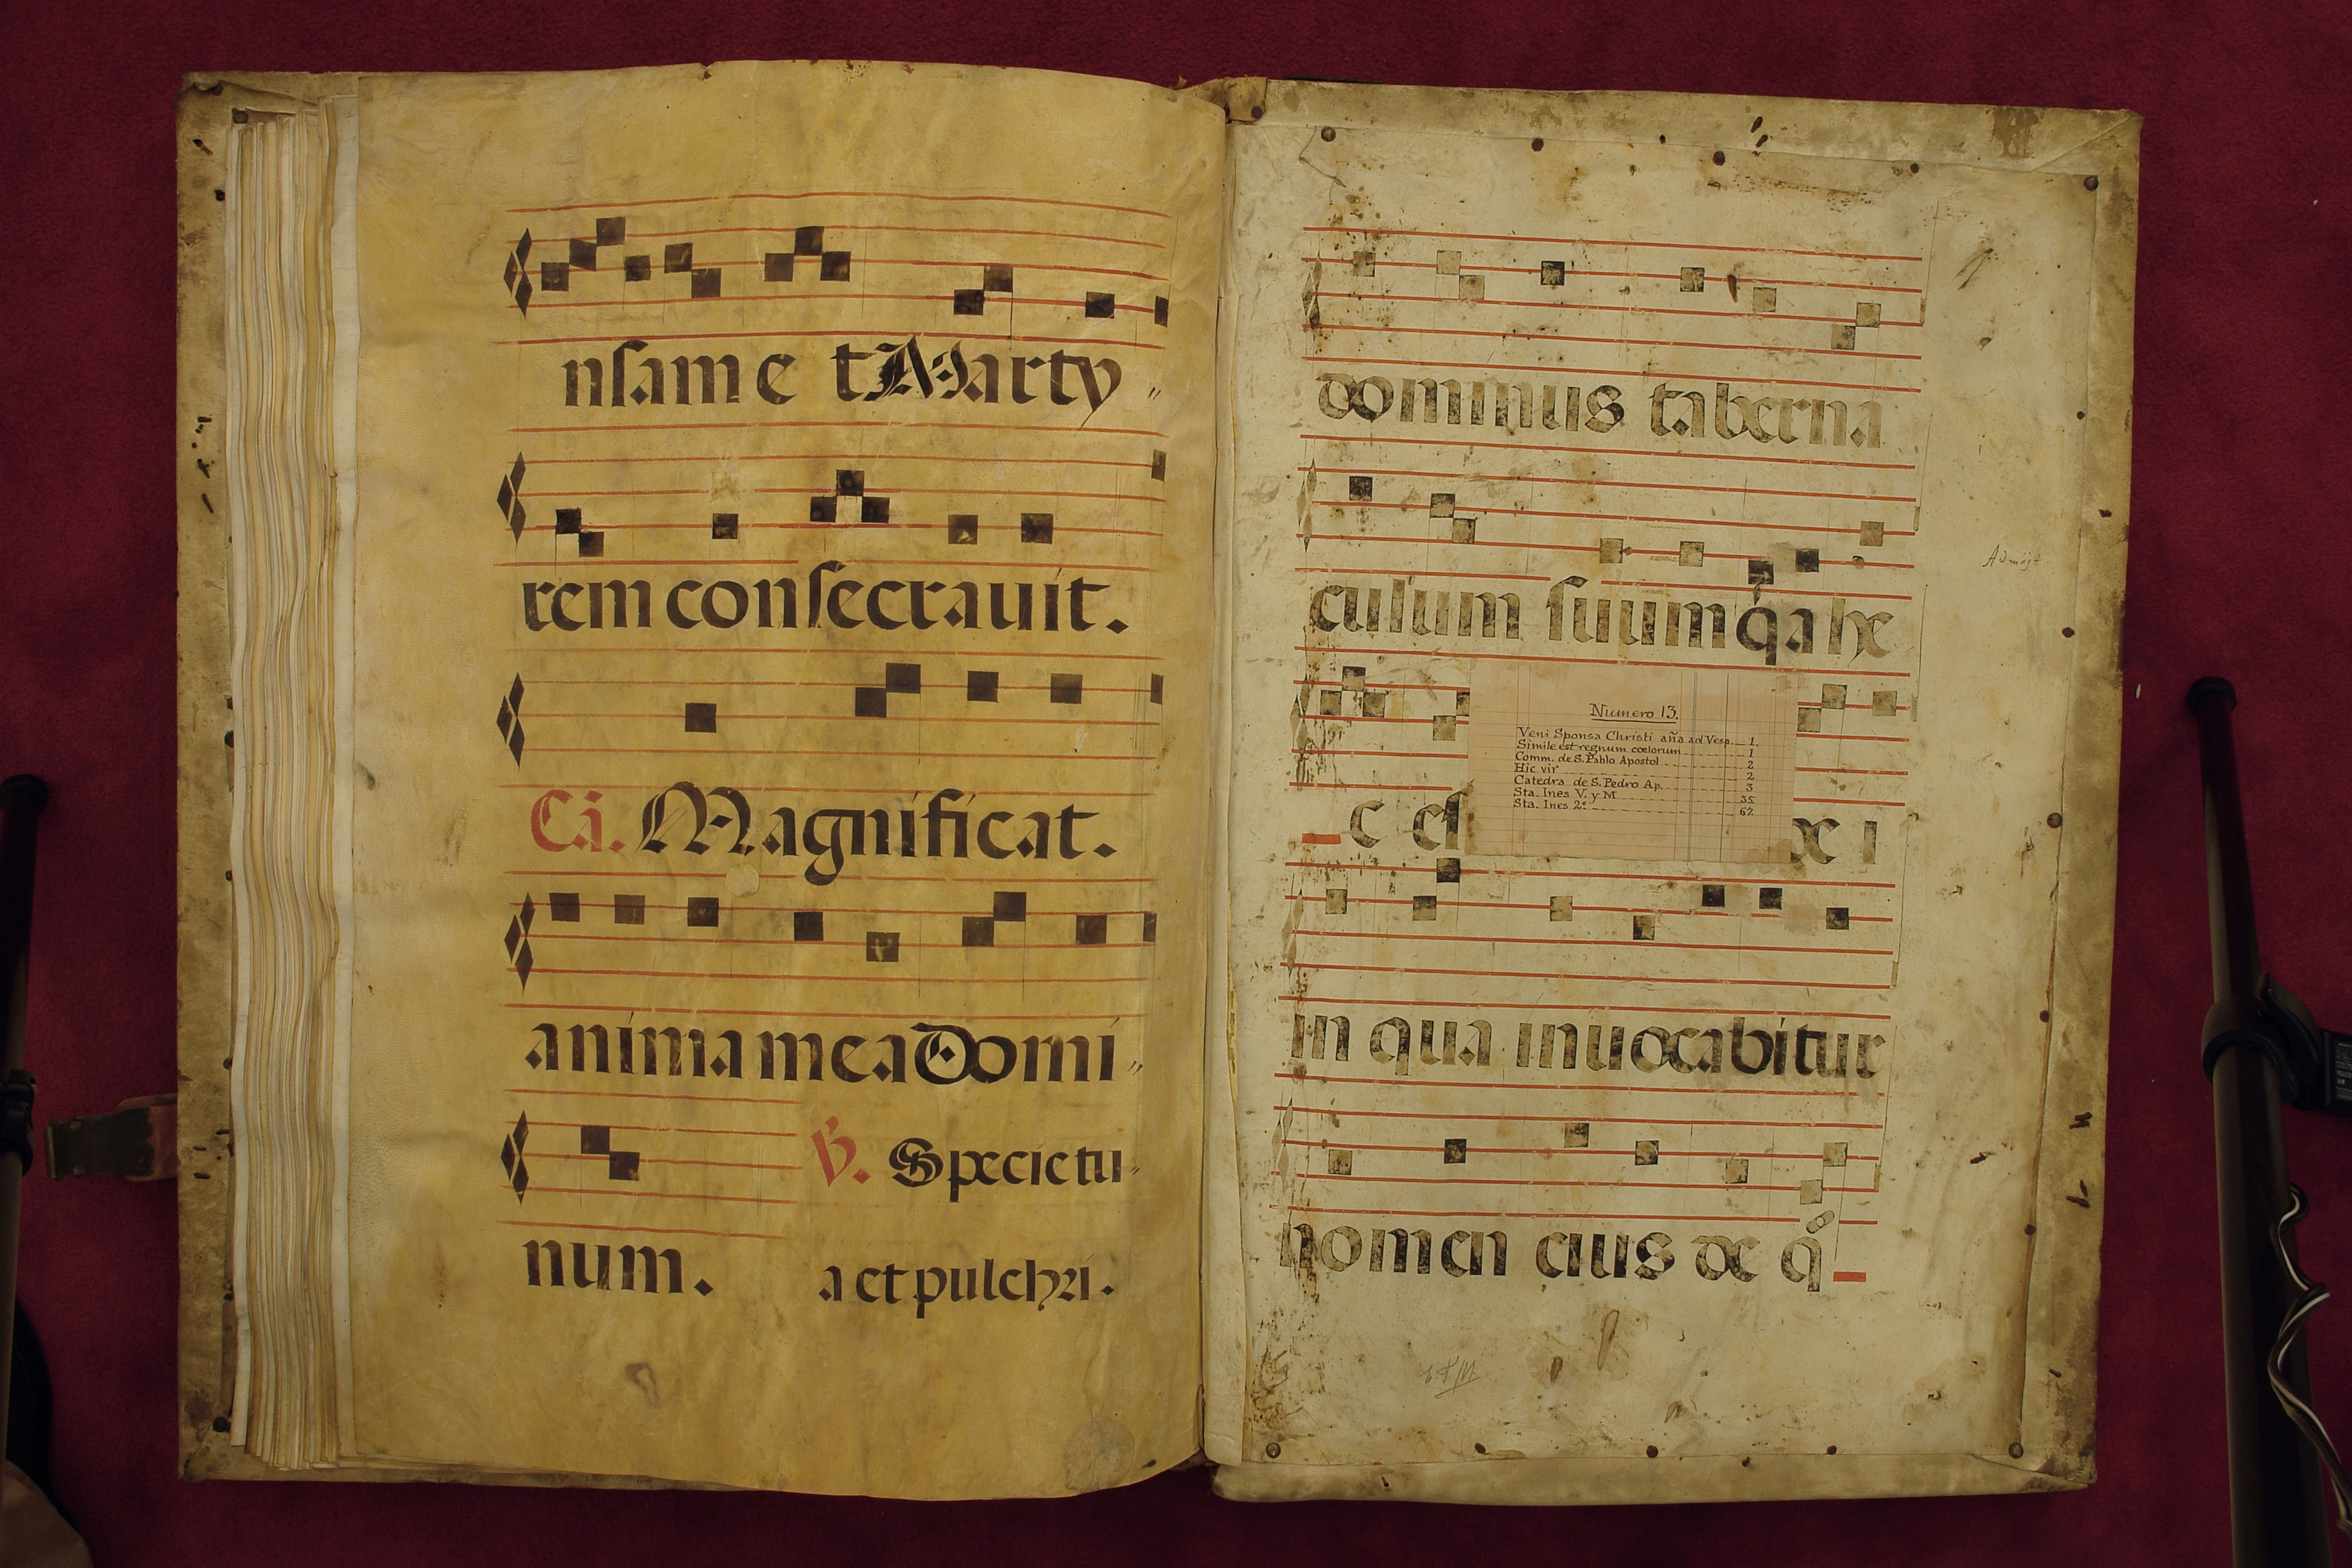 nsam e t Marty
rem consecrauit.
Ca. Magnificat.
anima mea Domi
num.
℣. Specie tu
a et pulchri.
dominus taberna
culum suum q̄a hec
in qua inuocabitur
nomen eius de q̊
Numero 13.
Veni Sponsa Christi aña ad Vesp. 1.
Simile est regnum cœlorum 1
Comm. de S. Pablo Apostol 2
Hic vir 2
Catedra de S. Pedro Ap. 3
Sta. Ines V. y M 35
Sta. Ines 2ª 67